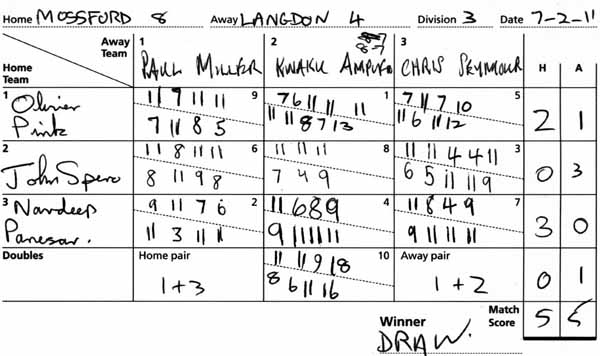 Home MOSSFORD 8 Away LANGDON 4 Division 3 Date 7-2-11
Away Team
Home Team
1 PAUL MILLER
2 KWAKU
3 CHRIS SEYMOUR
H A
1 Olivier
Pink
11 7 11 11 9
7 11 8 5
7 6 11 11 11 1
11 11 8 7 13
7 11 7 10 5
11 6 11 12
2 1
2 John Spero
11 8 11 11 6
8 11 9 8
11 11 11 8
7 4 9
11 11 4 4 11 3
6 5 11 11 9
0 3
3 Navdeep
Panesar.
9 11 7 6 2
11 3 11 11
11 6 8 9 4
9 11 11 11
11 8 4 9 7
9 11 11 11
3 0
Doubles
Home pair
1+3
11 11 9 18 10
8 6 11 16
Away pair
1+2
0 1
Winner
DRAW.
Match Score
5 5